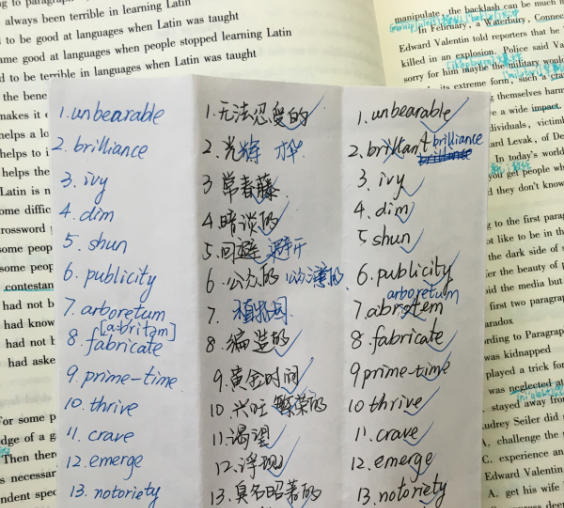 always been terrible in learning Latin
to be good at languages when Latin was taught
me good at languages when people stopped learning Latin
to be terrible in languages when Latin was taught
the bene
makes it
helps a lo
helps to i
helps the
Latin is n
ome diffic
rossword
some peop
some peo
contestan
had not b
had know
had not b
had aske
For some p
dge of a g
Then there
s necessar
ndent spec
1. unbearable
2. brilliance
3. ivy
4. dim
5. shun
6. publicity
7. arboretum
[abritəm]
8. fabricate
9. prime-time
10. thrive
11. crave
12. emerge
13. notoriety
1. 无法忍受的
2. 光辉 才华
3 常春藤
4 暗淡的
5. 回避 避开
6. 公众的
7. 植物园
8. 编造的
9. 黄金时间
10. 兴旺 繁荣的
11. 渴望
12. 浮现
13. 臭名昭著的
1. unbearable
2. brilliant brilliance
3. ivy
4. dim
5 shun
6. publicity
arboretum
7 abrotem
8. fabricate
9 prime-time
10 thrive
11. crave
12. emerge
13. notoriety
manipulate, the backlash can be much
In February, a Waterbury, Connec
Edward Valentin told reporters that he
killed in an explosion. Police said Va
sorry for him maybe the military would
its extreme form, such a cra
themselves harm
e a wide impact
dividuals, victim
d Levak, of De
In today's world
get people wh
d they don't know
g to the first parag
ot like to be in th
the dark side of
er the beauty of p
id the media but
first two paragrap
aradox
ording to Paragrap
was kidnapped
played a trick for
was neglected at
stayed away from
udrey Seiler did
A. challenge the
C. experience an
Edward Valentin
A. get his wife